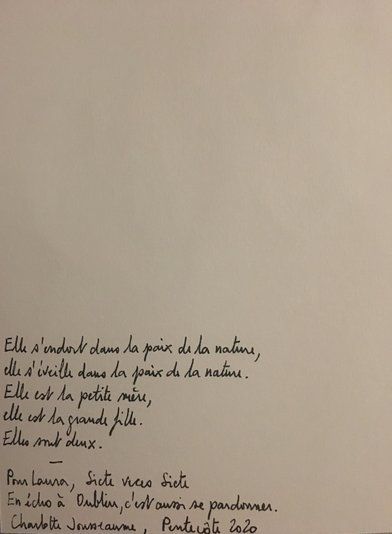 Elle s'endort dans la paix de la nature,
elle s'éveille dans la paix de la nature.
Elle est la petite mère,
elle est la grande fille.
Elles sont deux.
—
Pour Laura, Siete veces Siete
En écho à Dublin, c'est aussi se pardonner.
Charlotte Jousseaume, Pentecôte 2020